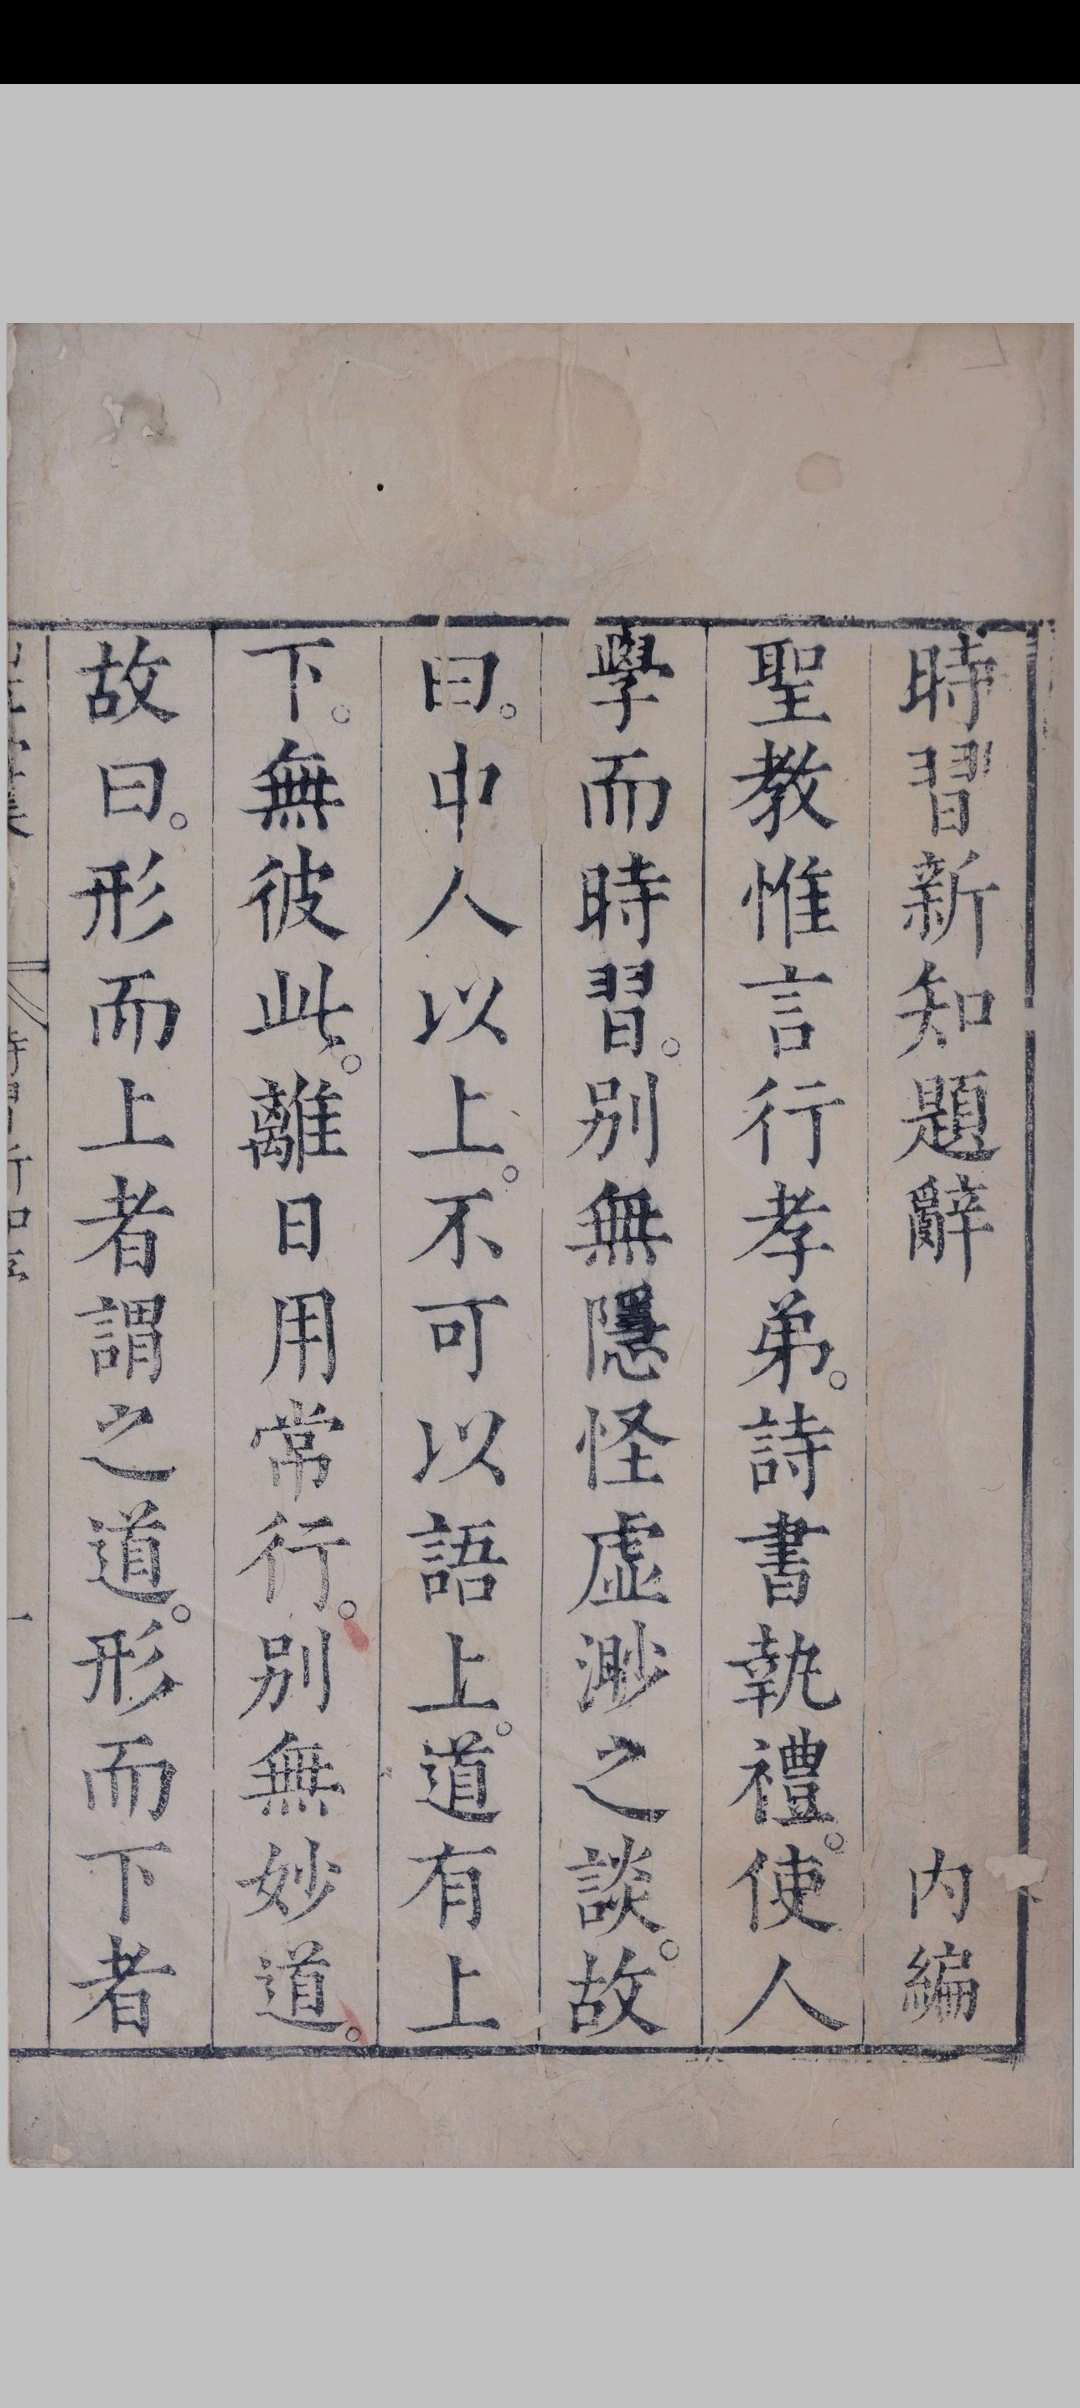 時習新知題辭 内編
聖教惟言行孝弟。詩書執禮。使人
學而時習。別無隱怪虛渺之談。故
曰。中人以上。不可以語上。道有上
下。無彼此。離日用常行。別無妙道。
故曰。形而上者謂之道。形而下者